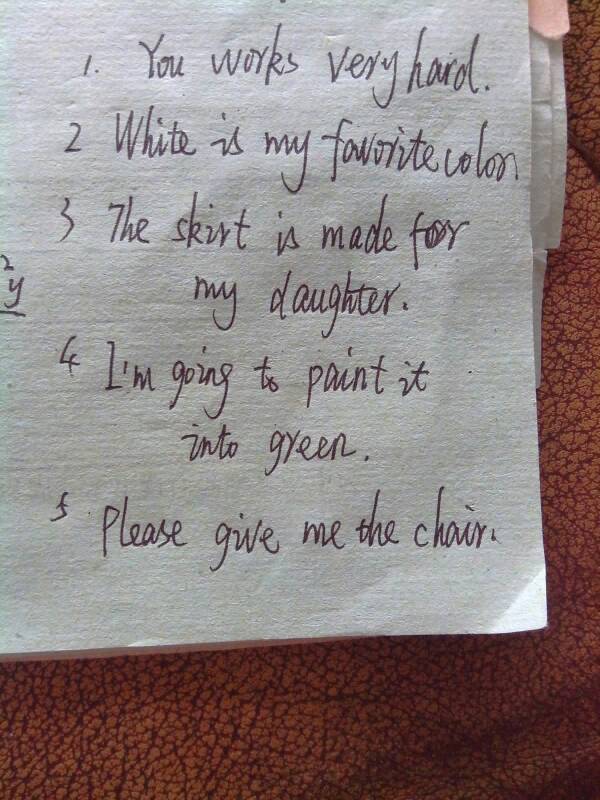 1. You works very hard.
2 White is my favorite color.
3 The skirt is made for
my daughter.
4 I'm going to paint it
into green.
5 Please give me the chair.